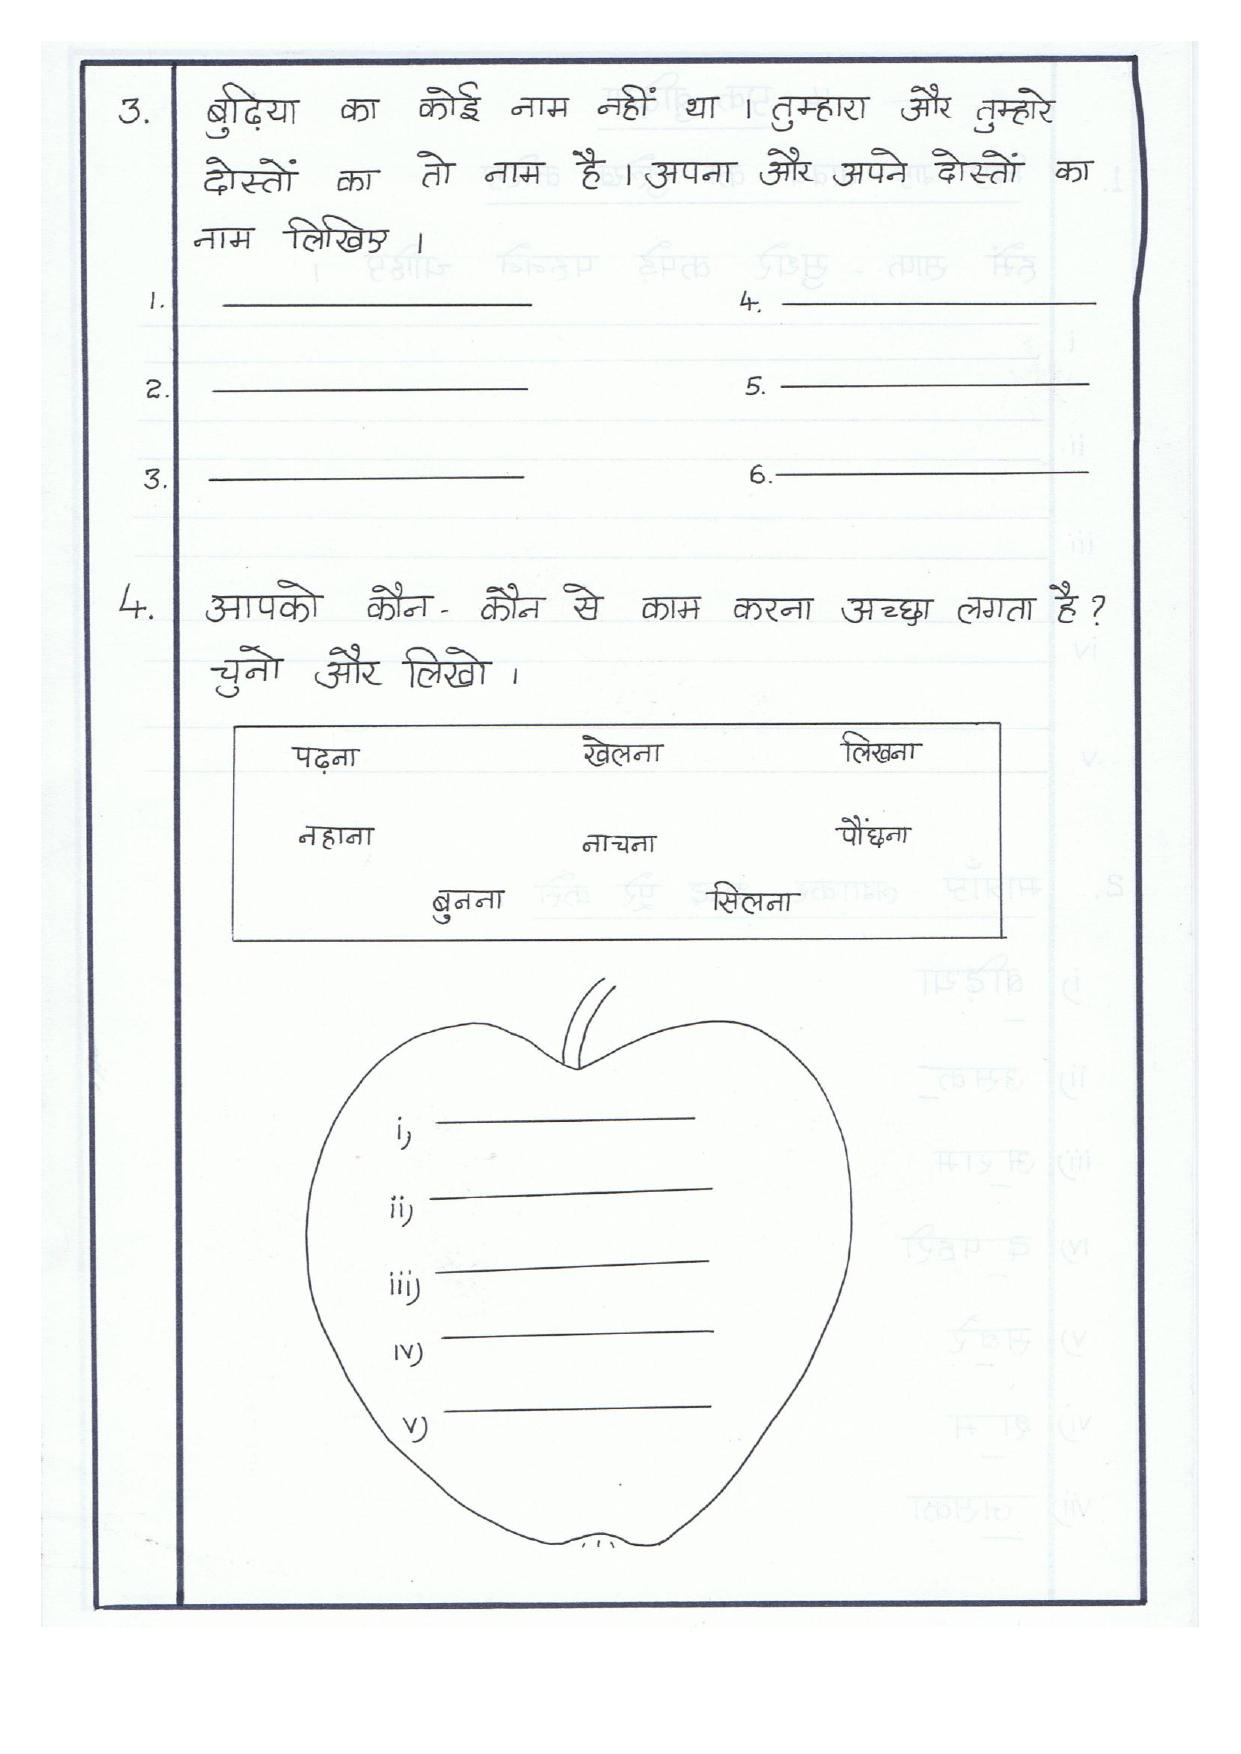 3. बुढ़िया का कोई नाम नहीं था । तुम्हारा और तुम्हारे
दोस्तों का तो नाम है । अपना और अपने दोस्तों का
नाम लिखिए ।
1. 4.
2. 5.
3. 6.
4. आपको कौन - कौन से काम करना अच्छा लगता है ?
चुनो और लिखो ।
पढ़ना खेलना लिखना
नहाना नाचना पौंछना
बुनना सिलना
i)
ii)
iii)
iv)
v)